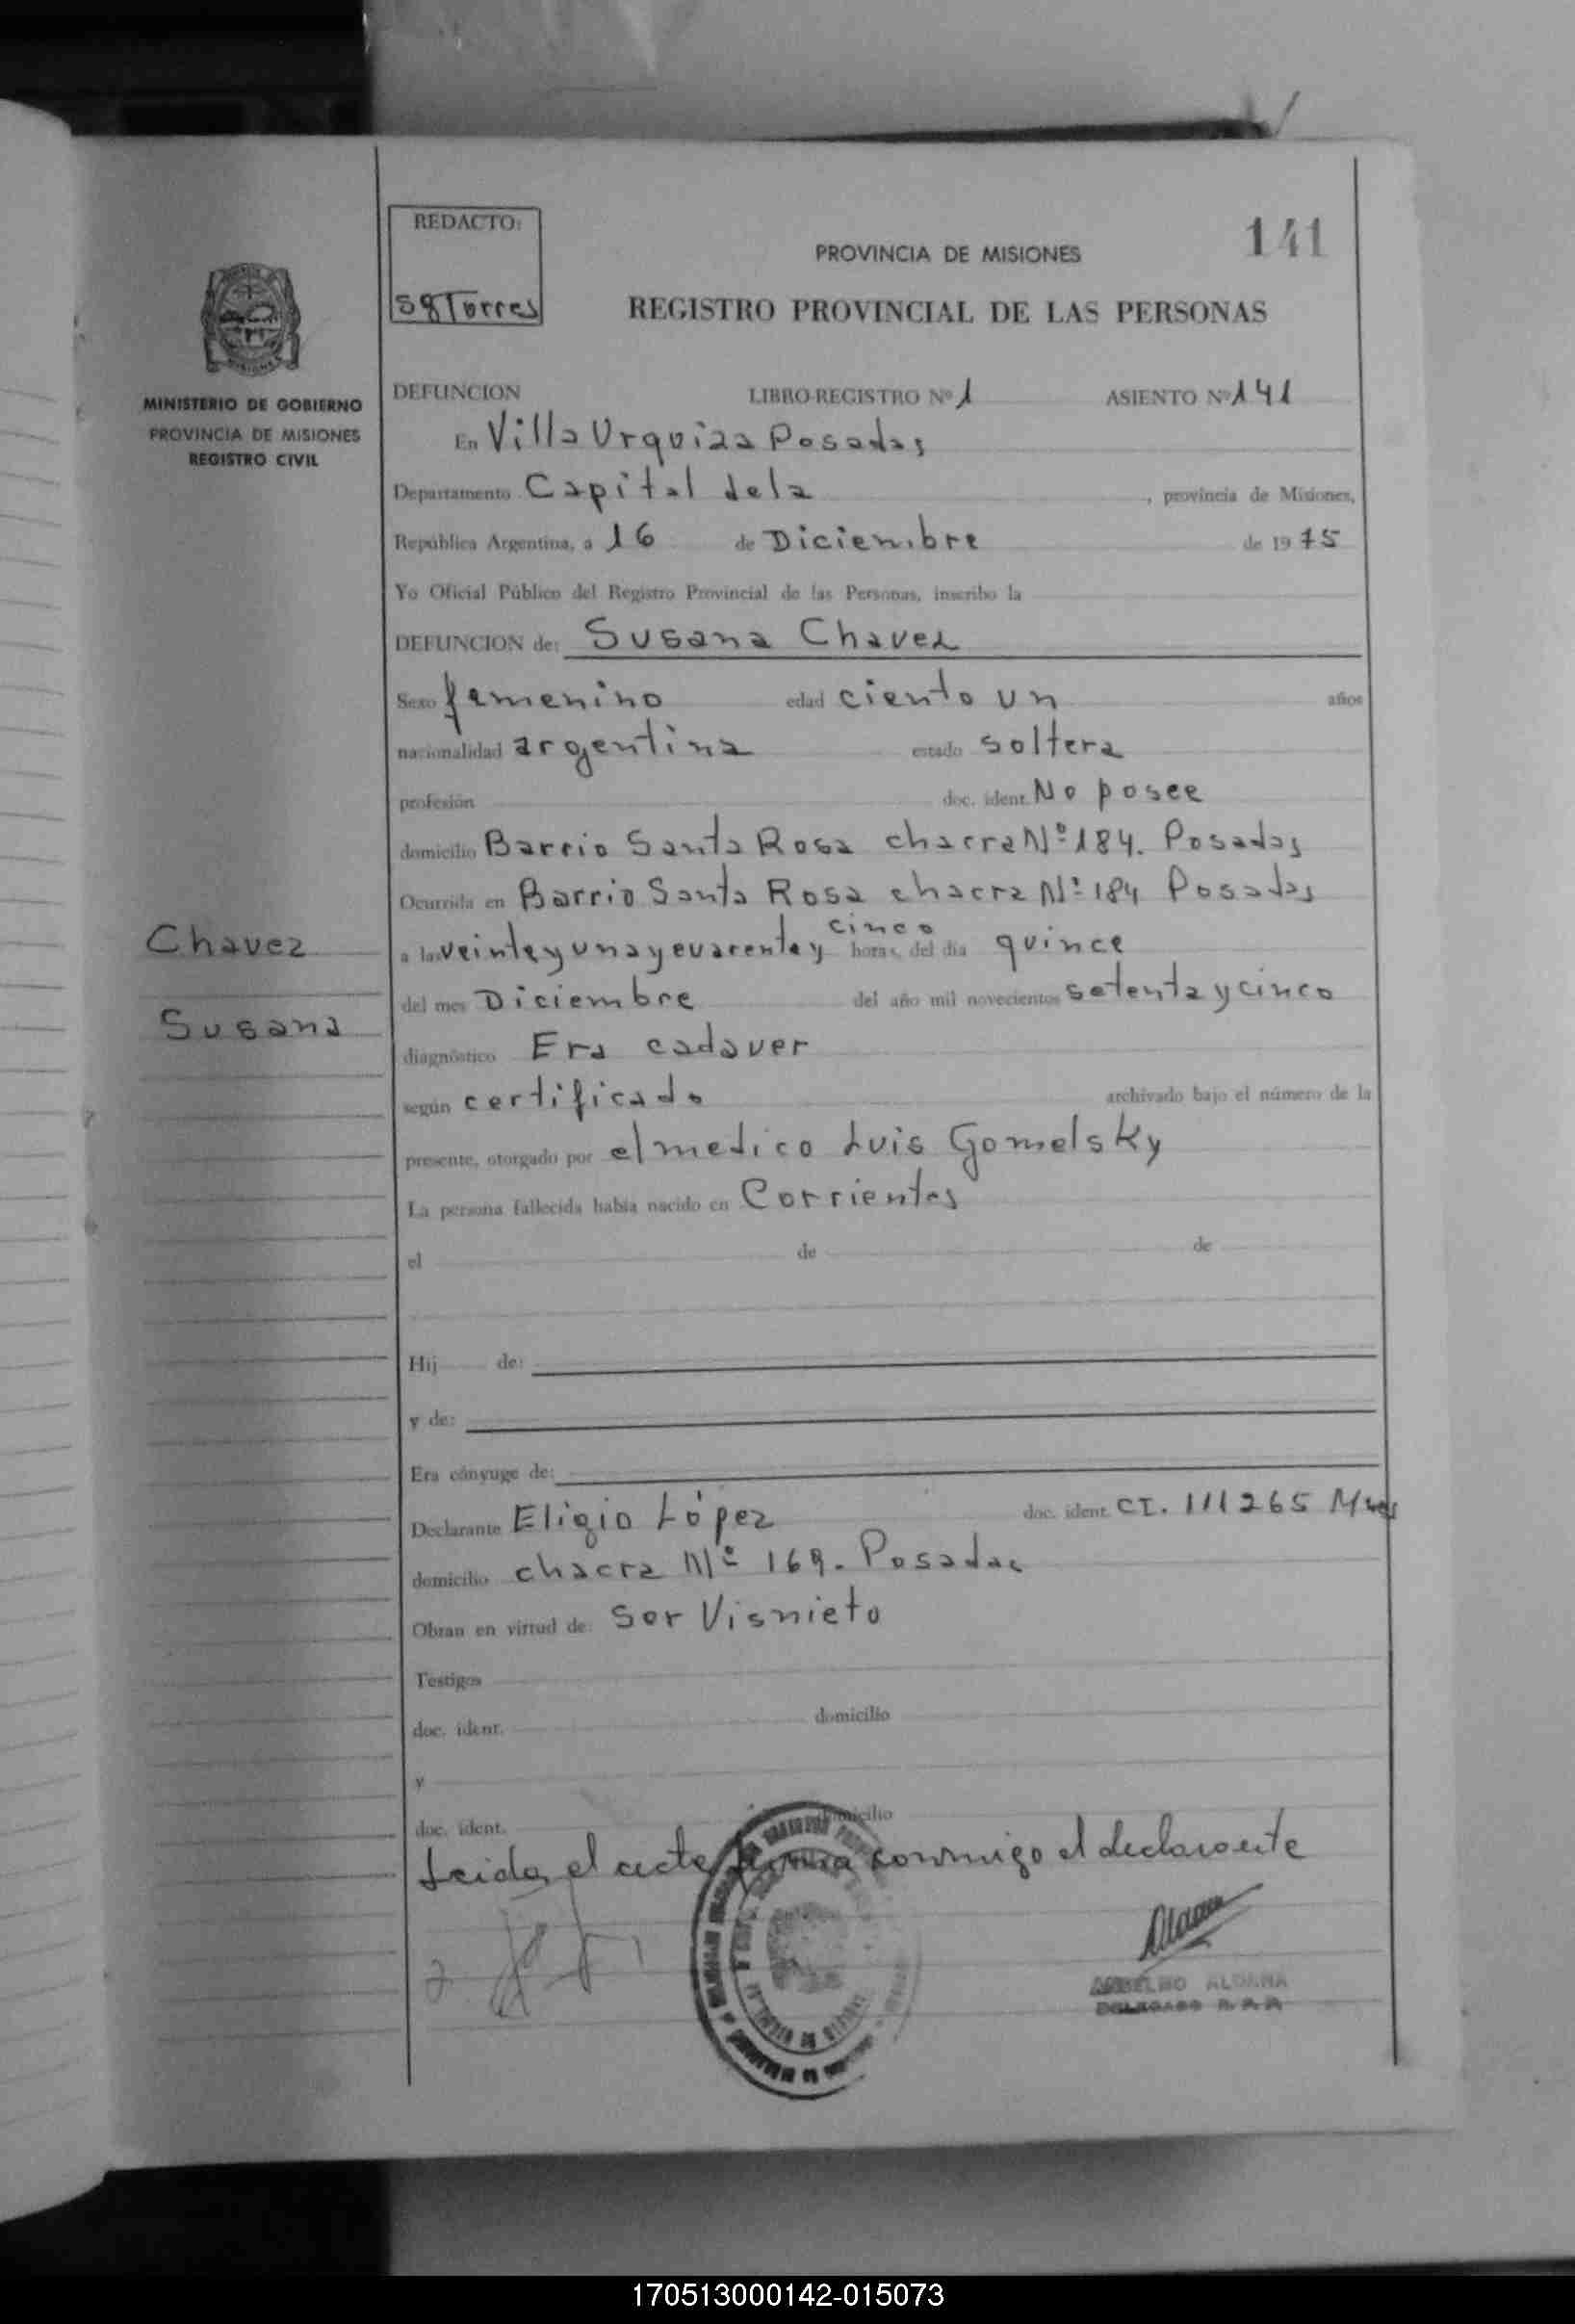 REDACTO:
SgTorres
141
PROVINCIA DE MISIONES
REGISTRO PROVINCIAL DE LAS PERSONAS
MINISTERIO DE GOBIERNO
PROVINCIA DE MISIONES
REGISTRO CIVIL
DEFUNCION LIBRO-REGISTRO Nº 1 ASIENTO Nº 141
En Villa Urquiza Posadas
Departamento Capital dela, provincia de Misiones,
República Argentina, a 16 de Diciembre de 1975
Yo Oficial Público del Registro Provincial de las Personas, inscribo la
DEFUNCION de: Susana Chavez
Sexo femenino edad ciento un años
nacionalidad argentina estado soltera
profesión doc. ident. No posee
domicilio Barrio Santa Rosa chacra Nº 184. Posadas
Ocurrida en Barrio Santa Rosa chacra Nº 184 Posadas
Chavez
Susana
a las veinte y una y cuarenta y cinco horas, del día quince
del mes Diciembre del año mil novecientos setenta y cinco
diagnóstico Era cadaver
según certificado archivado bajo el número de la
presente, otorgado por el medico Luis Gomelsky
La persona fallecida había nacido en Corrientes
el de de
Hij de:
y de:
Era cónyuge de:
Declarante Eligio López doc. ident. CI. 111265 Mnes
domicilio chacra Nº 169. Posadas
Obran en virtud de: Ser Visnieto
Testigos
doc. ident. domicilio
y
doc. ident. domicilio
Leida el acta firma conmigo el declarante
ANSELMO ALDANA
DELEGADO R.P.P.
170513000142-015073